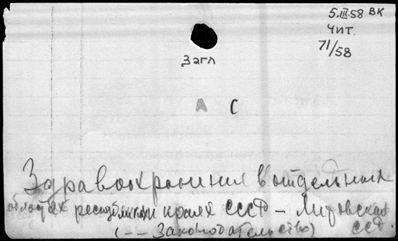 5.III.58 ВК
Чит.
71/58
Загл
А С
Здравоохранения в отдельных
областях республиках краях СССР – Литовская
ССР
(-- Законодательство)